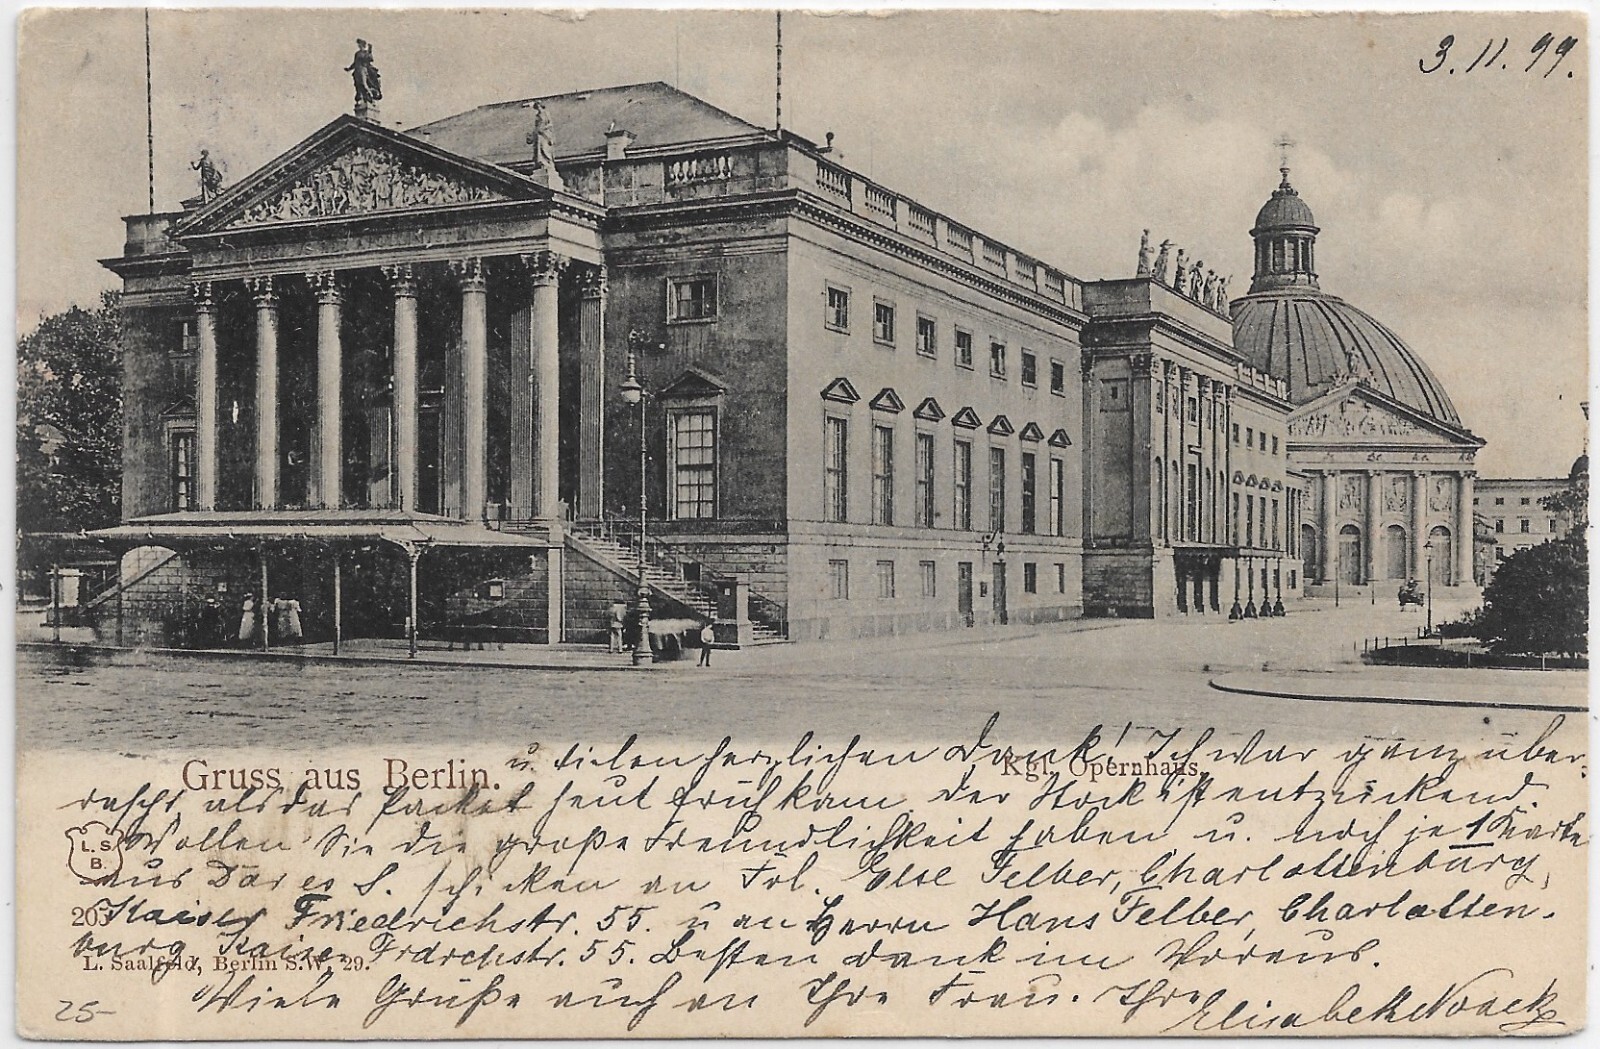 3. 11. 99.
Gruss aus Berlin.
Kgl. Opernhaus.
u. vielen herzlichen Dank! Ich war ganz über-
rascht als das Packet heut früh kam. Der Stock ist entzückend.
Wollen Sie die große Freundlichkeit haben u. noch je 1 Karte
aus Dar es S. schicken an Frl. Else Felber, Charlottenburg,
Kaiser Friedrichstr. 55. u an Herrn Hans Felber, Charlotten-
burg, Kaiser Frdrchstr. 55. Besten Dank im Voraus.
Viele Grüße auch an Ihre Frau. Ihre
Elisabeth Noack
L. S.
B.
L. Saalfeld, Berlin S.W. 29.
25-